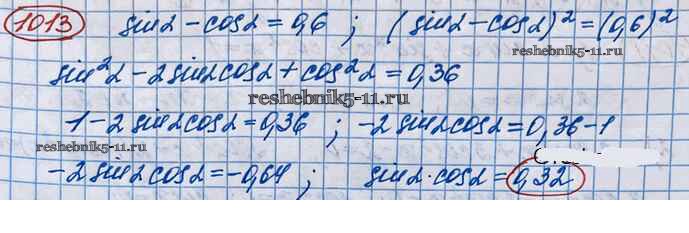 1013 sinα - cosα = 0,6 ; (sinα - cosα)² = (0,6)²
reshebnik5-11.ru
sin²α - 2sinαcosα + cos²α = 0,36
reshebnik5-11.ru
1 - 2sinαcosα = 0,36 ; -2sinαcosα = 0,36 - 1
reshebnik5-11.ru
-2sinαcosα = -0,64 ; sinα·cosα = 0,32